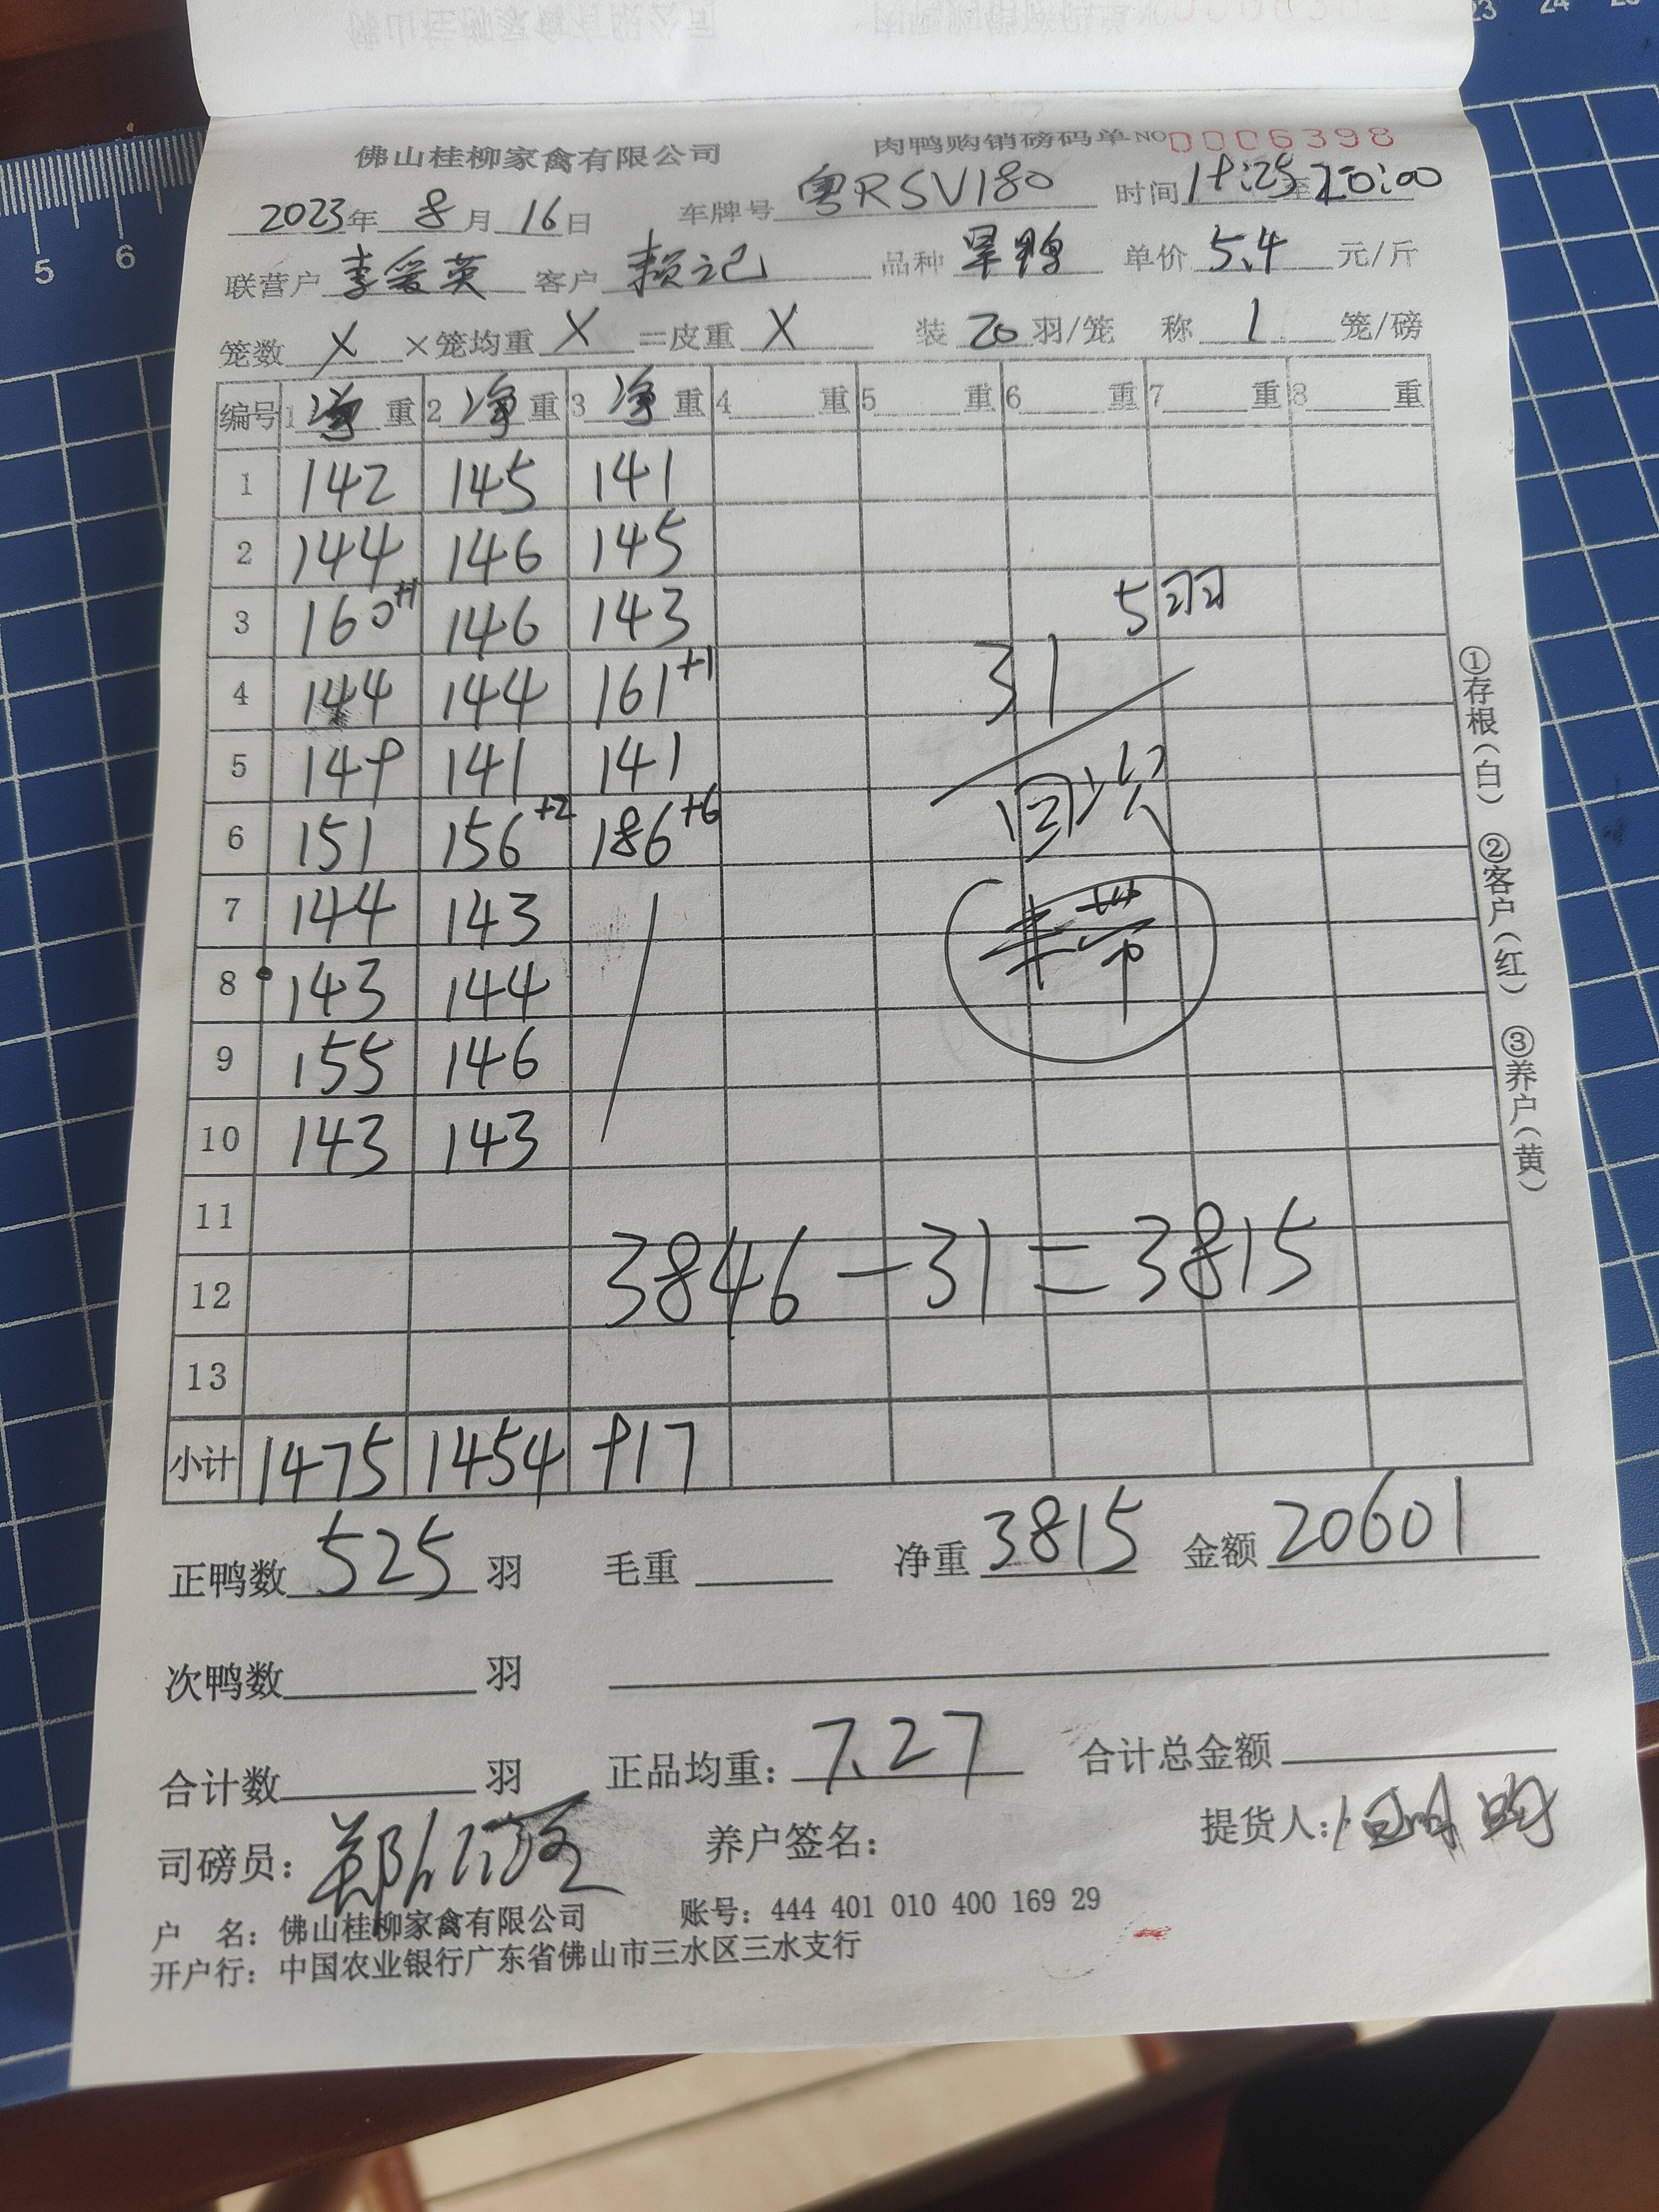 佛山桂柳家禽有限公司 肉鸭购销磅码单 NO 0006398
2023年 8月 16日 车牌号 粤RSV180 时间 19:25至20:00
联营户 李爱英 客户 赖记 品种 旱鸭 单价 5.4 元/斤
笼数 X ×笼均重 X =皮重 X 装 20 羽/笼 称 1 笼/磅
编号 1 净 重 2 净 重 3 净 重 4 重 5 重 6 重 7 重 8 重
1 142 145 141
2 144 146 145
3 160+1 146 143
5羽
4 144 144 161+1
31
5 149 141 141
6 151 156+2 186+6
7 144 143
8 143 144
9 155 146
10 143 143
11
12 3846-31=3815
13
小计 1475 1454 917
正鸭数 525 羽 毛重 净重 3815 金额 20601
次鸭数 羽
合计数 羽 正品均重: 7.27 合计总金额
司磅员: 养户签名: 提货人:
户 名: 佛山桂柳家禽有限公司 账号: 444 401 010 400 169 29
开户行: 中国农业银行广东省佛山市三水区三水支行
①存根(白) ②客户(红) ③养户(黄)
5 6
23 24